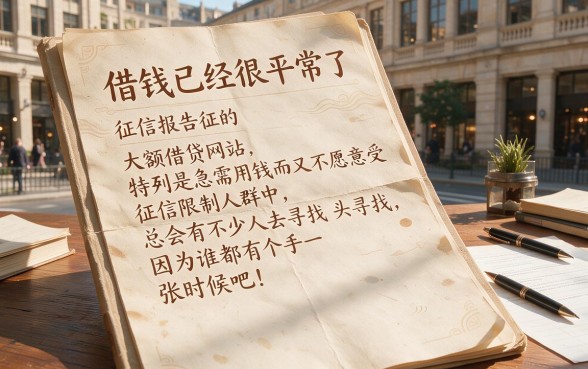 借钱已经很平常了
征信报告征的
大额借贷网站，
特列是急需用钱而又不愿意受
征信限制人群中，
总会有不少人去寻找 头寻找，
因为谁都有个手一
张时候吧！